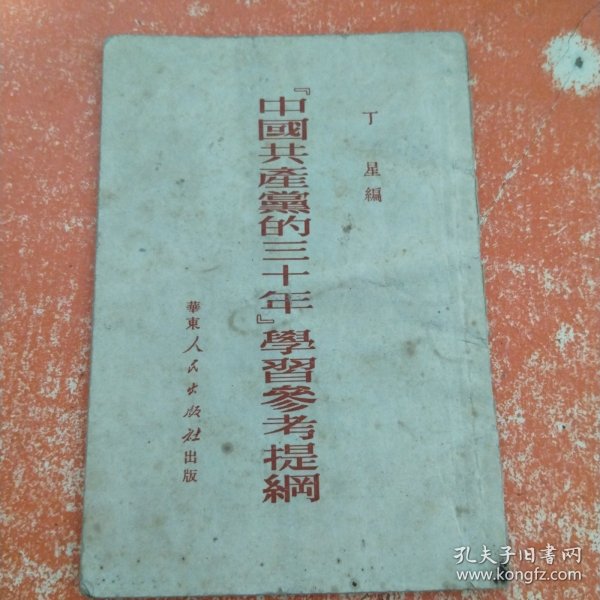 丁星編
『中國共產黨的三十年』學習參考提綱
華東人民出版社出版
孔夫子旧书网
www.kongfz.com